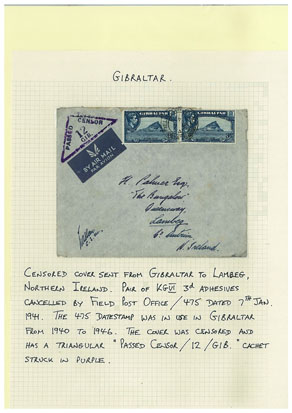 GIBRALTAR.
PASSED CENSOR 12 GIB.
GIBRALTAR GIBRALTAR
BY AIR MAIL
PAR AVION
H. Palmer Esq.
The Bungalow
Lambeg
Co. Antrim
N. Ireland.
CENSORED COVER SENT FROM GIBRALTAR TO LAMBEG,
NORTHERN IRELAND. PAIR OF KGVI 3d ADHESIVES
CANCELLED BY FIELD POST OFFICE / 475 DATED 7TH JAN.
1941. THE 475 DATESTAMP WAS IN USE IN GIBRALTAR
FROM 1940 TO 1946. THE COVER WAS CENSORED AND
HAS A TRIANGULAR "PASSED CENSOR / 12 / GIB." CACHET
STRUCK IN PURPLE.